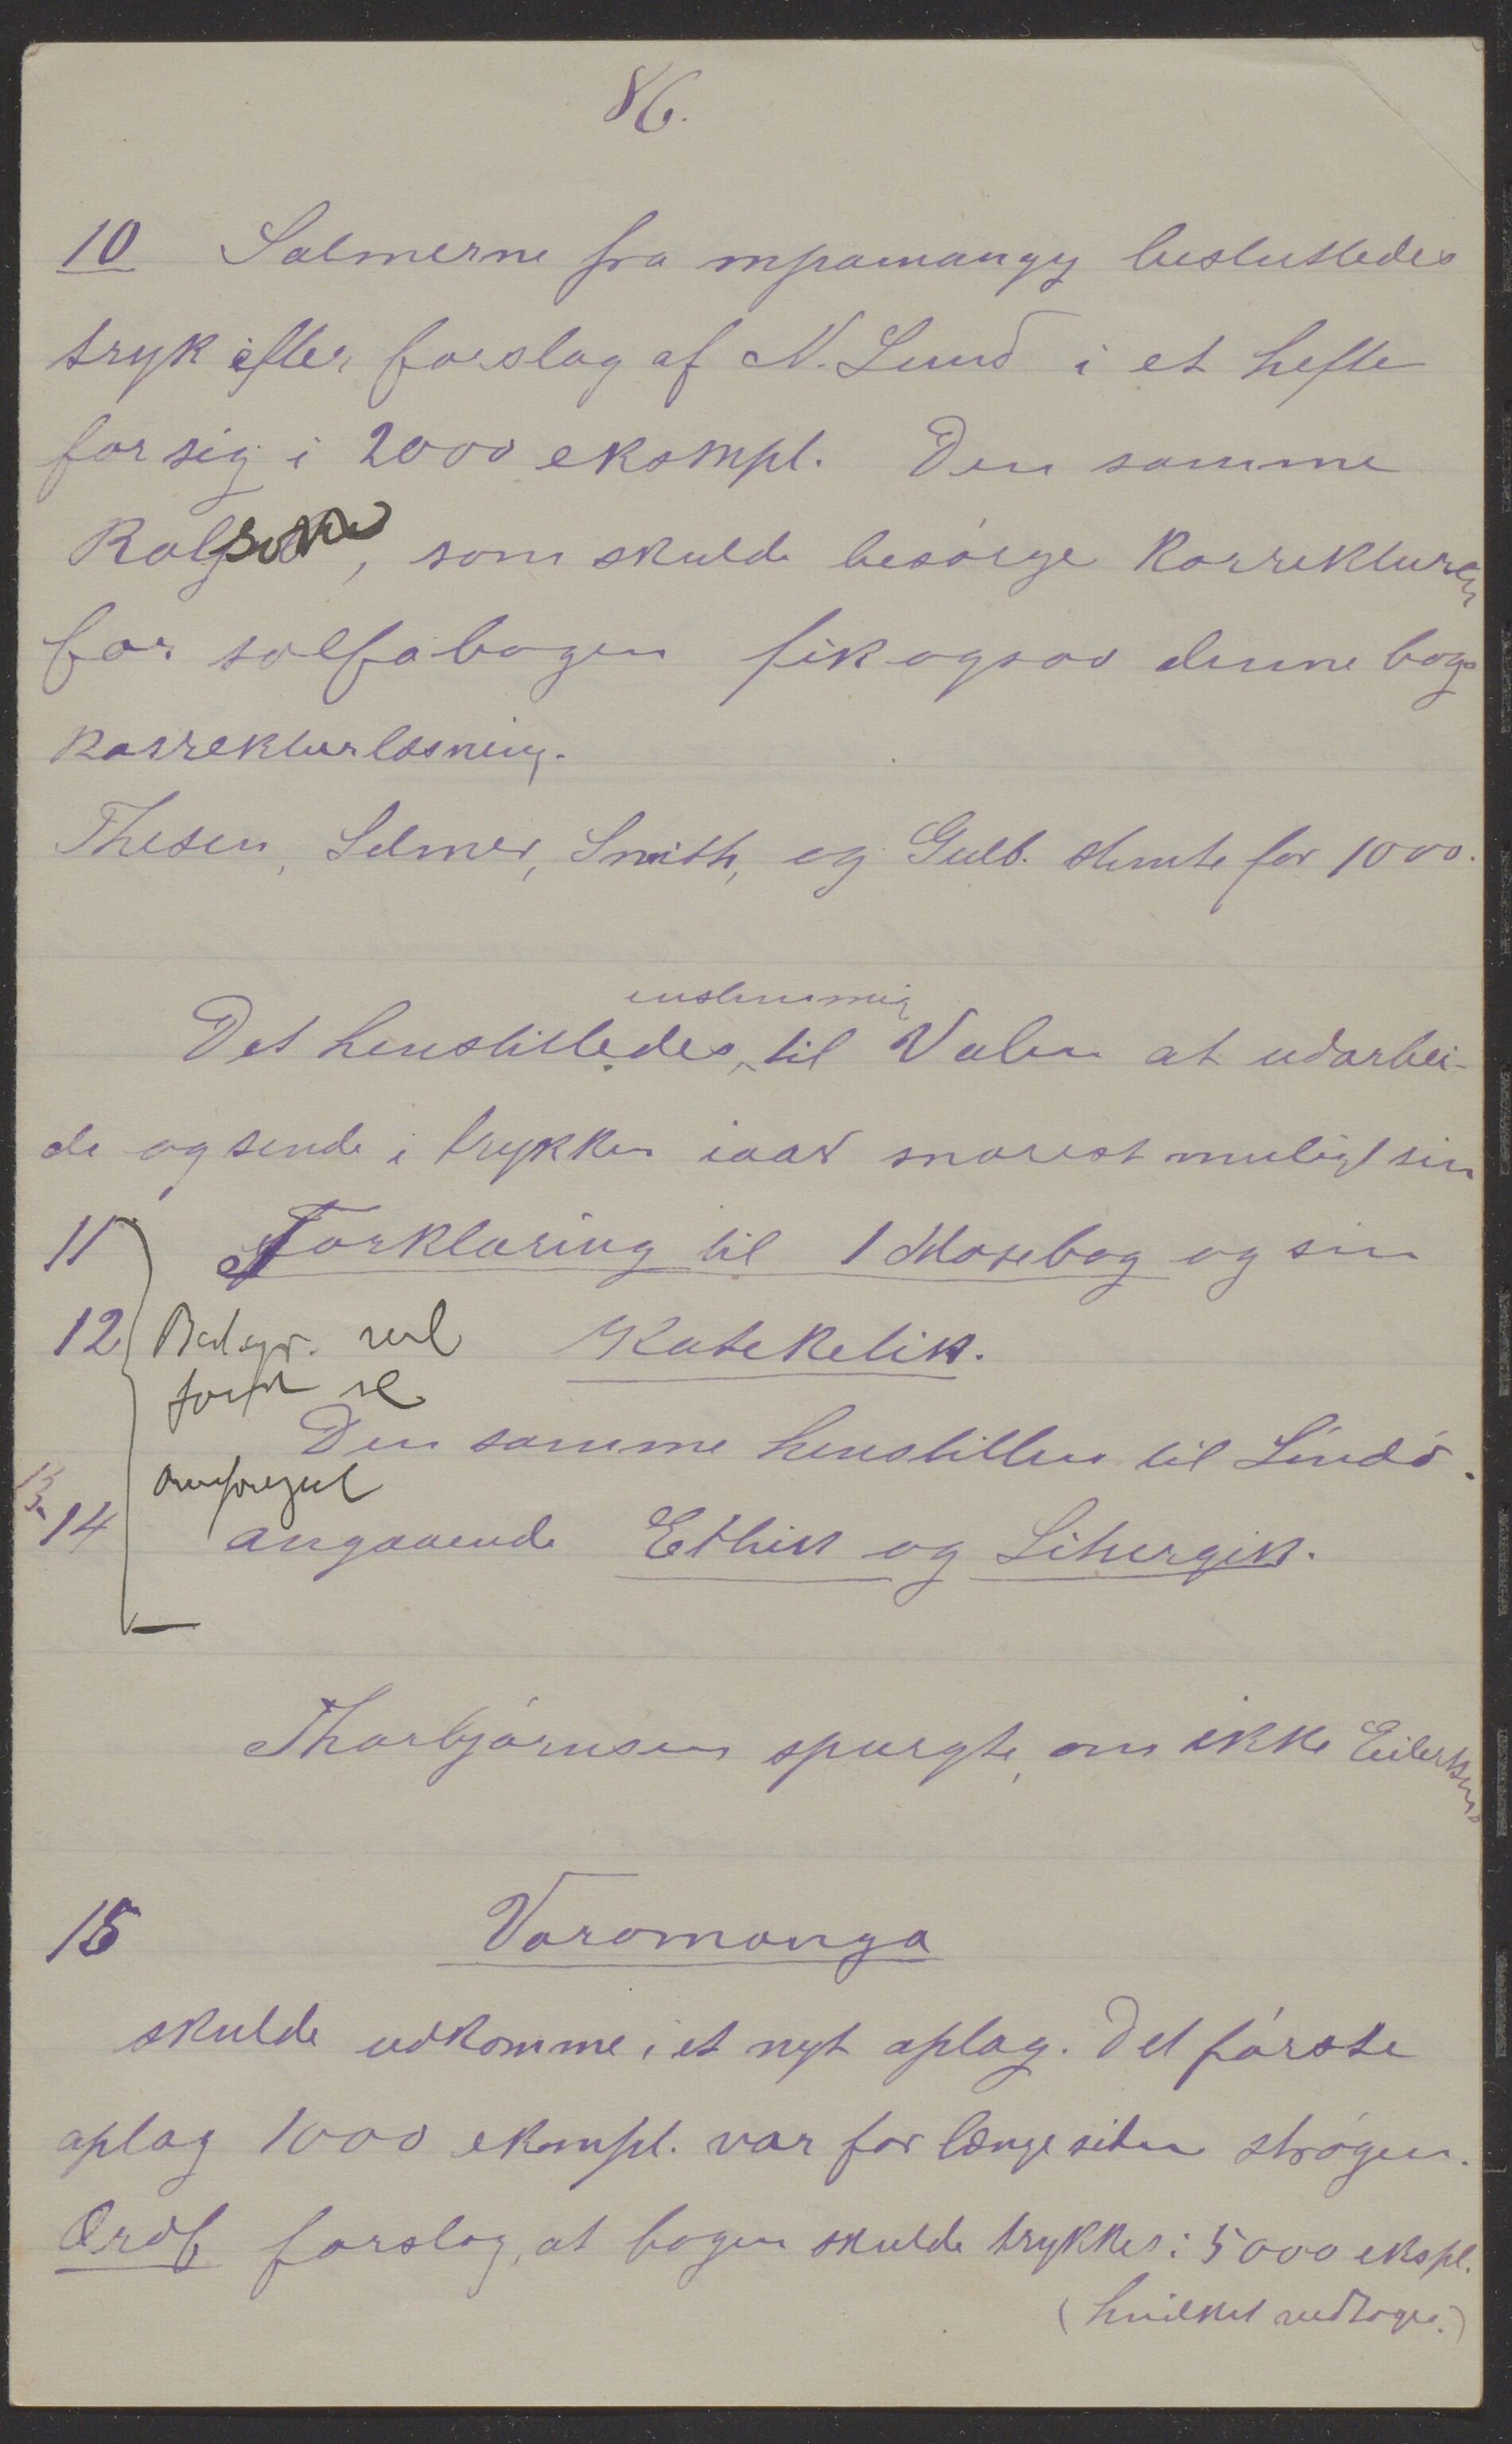 86.
10 Salmerne fra mpamangy besluttedes
tryk efter forslag af N. Lund i et hefte
for sig i 2000 eksmpl. Den samme
, som skulde besørge korrekturen
for solfabogen fik ogsaa denne bogs
korrekturlæsning.
Thesen, Selmer, Smith, og Gulb. stemte for 1000.
enstemmig
Det henstilledes, til Valen at udarbei-
de og sende i trykken iaar snarest muligt sin
11 Forklaring til 1 Mosebog og sin
12 Katekelik.
Den samme henstillen til Lindø.
13. 14 angaaende Ethik og Liturgik.
Thorbjørnsen spurgte, om ikke Eilertsens
15 Varomanga
skulde udkomme i et nyt oplag. Det første
oplag 1000 eksmpl. var for længe siden strøgen.
Ordf forslag, at bogen skulde trykkes i 5000 ekspl.
(hvilket vedtoges.)